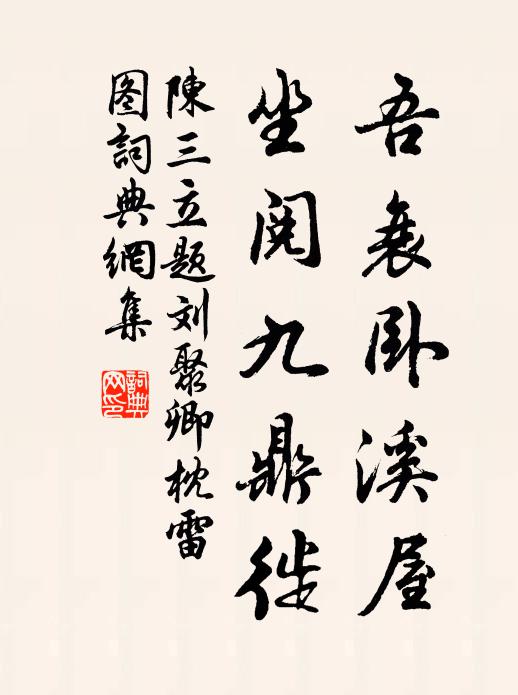 吾衰卧溪屋
坐阅九鼎徙
陳三立题刘聚卿枕雷
图詞典網集
詞典網印